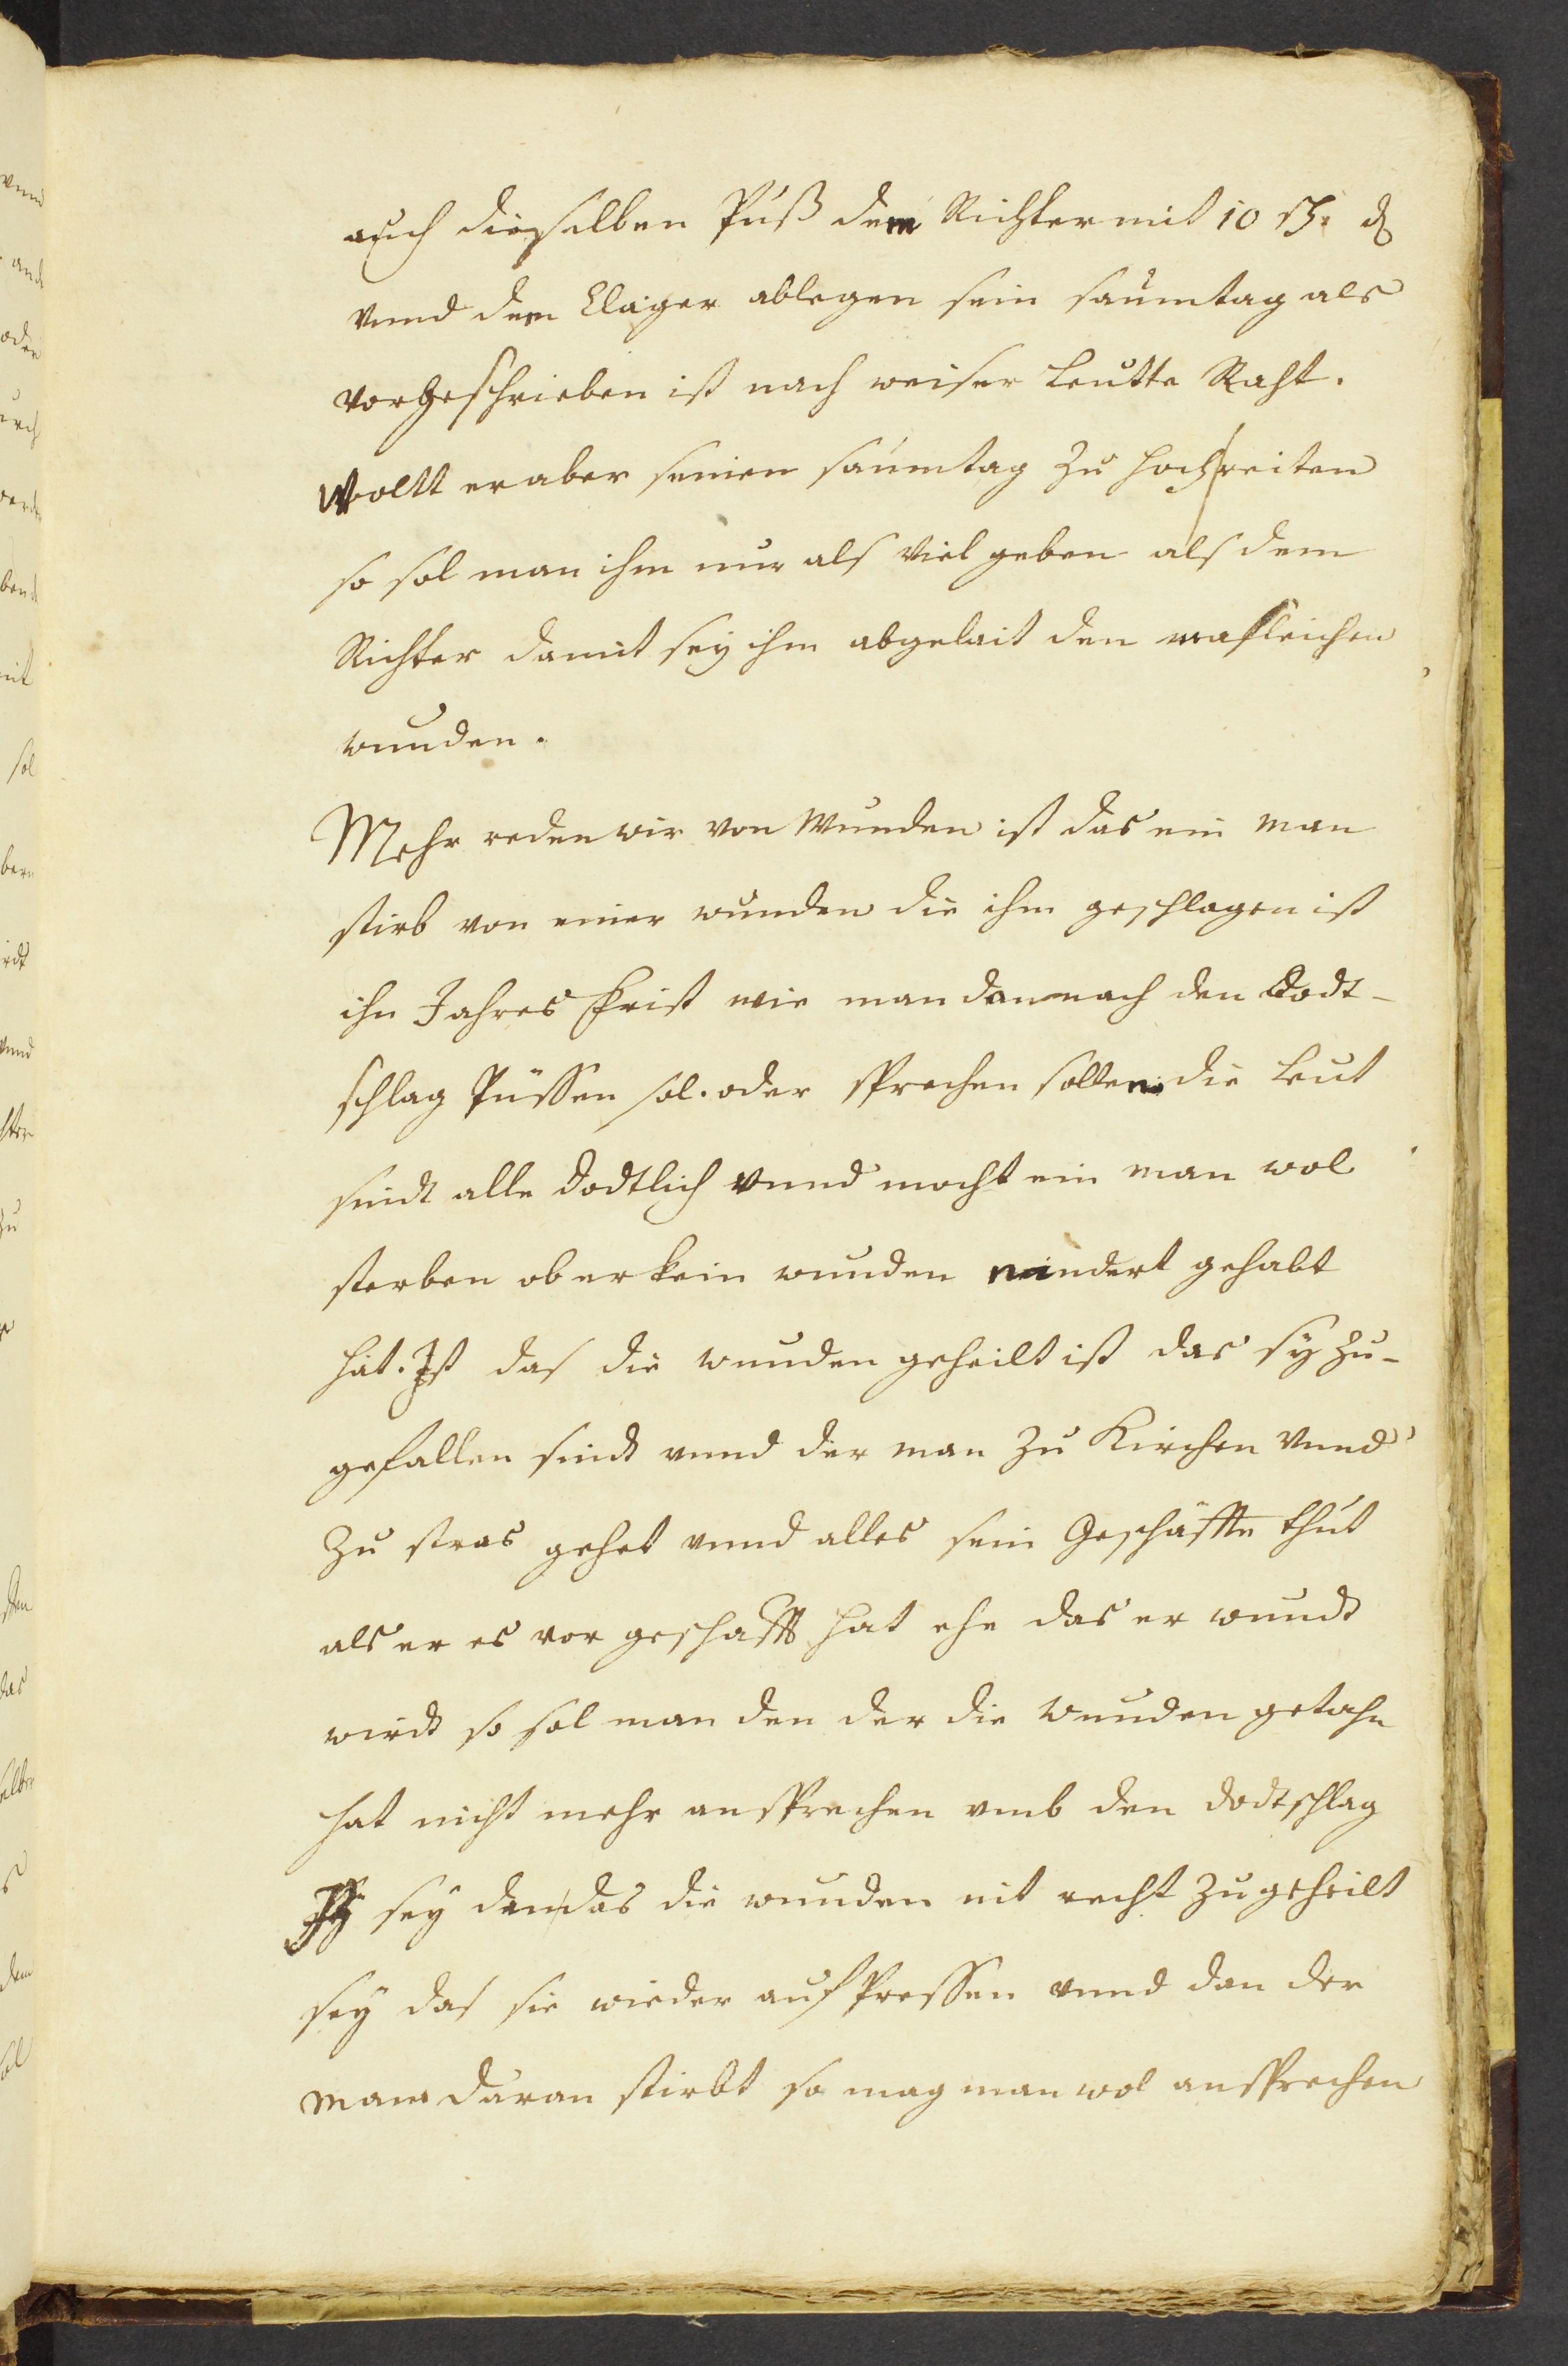 auch dieselben Puß dem Richter mit 10 ß. d
vnnd dem Clager ablegen sein saumtag als
vorgeschrieben ist nach weiser Leutte Raht.
Wollt er aber seinen saumtag zu hoch reiten
so sol man ihm nur als viel geben als dem
Richter damit sey ihm abgelait den
wunden.
Mehr reden wir von Wunden ist das ein man
stirb von einer wunden die ihm geschlagen ist
ihn Jahres frist wie man dannach den Todt-
schlag Püssen sol. oder sprechen sollen die Leut
sindt alle Todtlich vnnd mocht ein man wol
sterben ob er kein wunden nindert gehabt
hät. Ist das die wunden geheilt ist das sy zu-
gefallen sindt vnnd der man zu Kirchen vnnd
zu stras gehet vnnd alles sein Geschäffte thut
als er es vor geschafft hat ehe das er wundt
wirdt so sol man den der die wunden getahn
hat nicht mehr ansprechen vmb den Todtschlag
sey den das die wunden nit recht zugeheilt
sey das sie wieder auf Pressen vnnd dan der
Mann daran stirbt so mag man wol ansprechen
vnnd
and
oder
urch
bend
nit
sol
bern
irdt
vnnd
hter
zu
den
das
selben
dem
sol